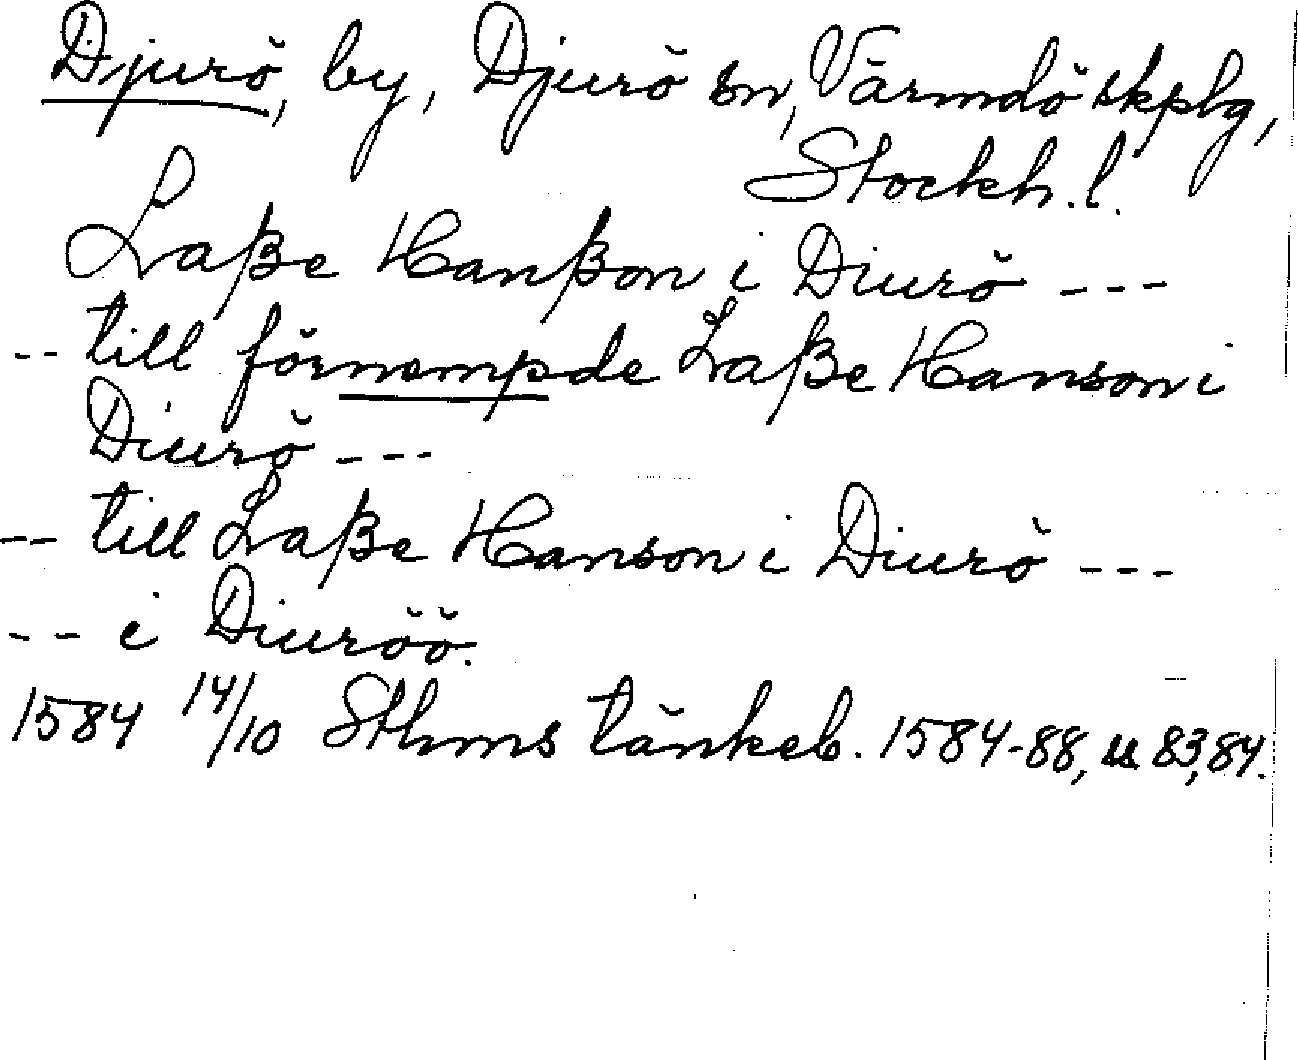 Djurö, by, Djurö sn, Värmdö skplg,
Stockh. l.
Laße Hanßon i Diurö ---
-- till förnempde Laße Hanson i
Diurö ---
-- till Laße Hanson i Diurö ---
-- i Diuröö.
1584 14/10 Sthms tänkeb. 1584-88, 83, 84.